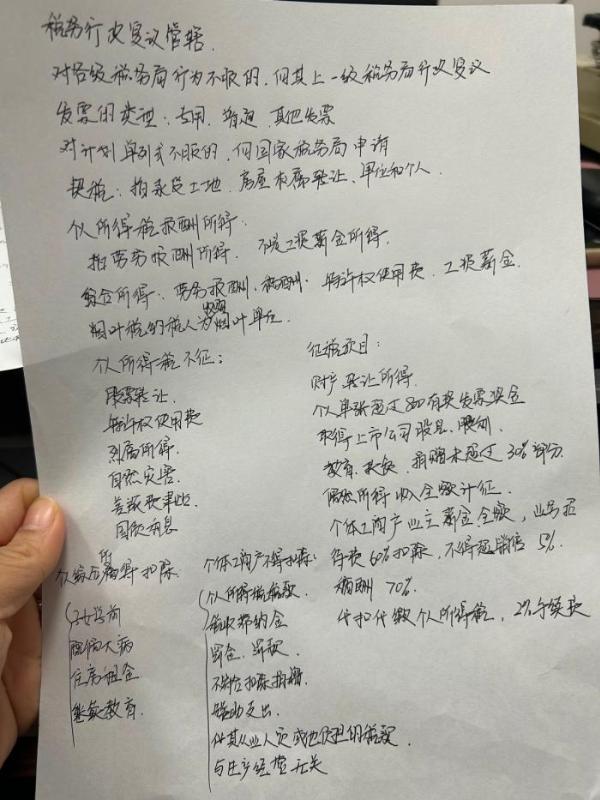 税务行政复议管辖.
对各级税务局行为不服的,向其上一级税务局行政复议
发票的类型:专用、普通、其他发票
对计划单列式不服的,向国家税务局申请
契税:指承受土地、房屋权属转让、单位和个人
个人所得税报酬所得:
指劳务报酬所得.不是工资薪金所得.
综合所得:劳务报酬、稿酬、特许权使用费、工资薪金.
烟叶税的税人为收购烟叶单位.
个人所得税不征:
股票转让.
特许权使用费
烈属所得.
自然灾害.
差旅费事贴
国债利息
征税项目:
财产转让所得.
个单张超过800有奖发票奖金
取得上市公司股息、股利.
教育、扶贫、捐赠未超过30%部分.
偶然所得收入全额计征.
个体工商户业主薪金全额,业务招
待费60%扣除、不得超销售5‰.
稿酬70%.
代扣代缴个人所得税、2%手续费
个人综合所得扣除
子女培育
医病大病
住房租金
继续教育.
个体工商户不得扣除:
个人所得税税款
税收滞纳金
罚金、罚款.
不符合扣除捐赠.
赞助支出.
代其从业人员或他人负担的税款.
与生产经营无关